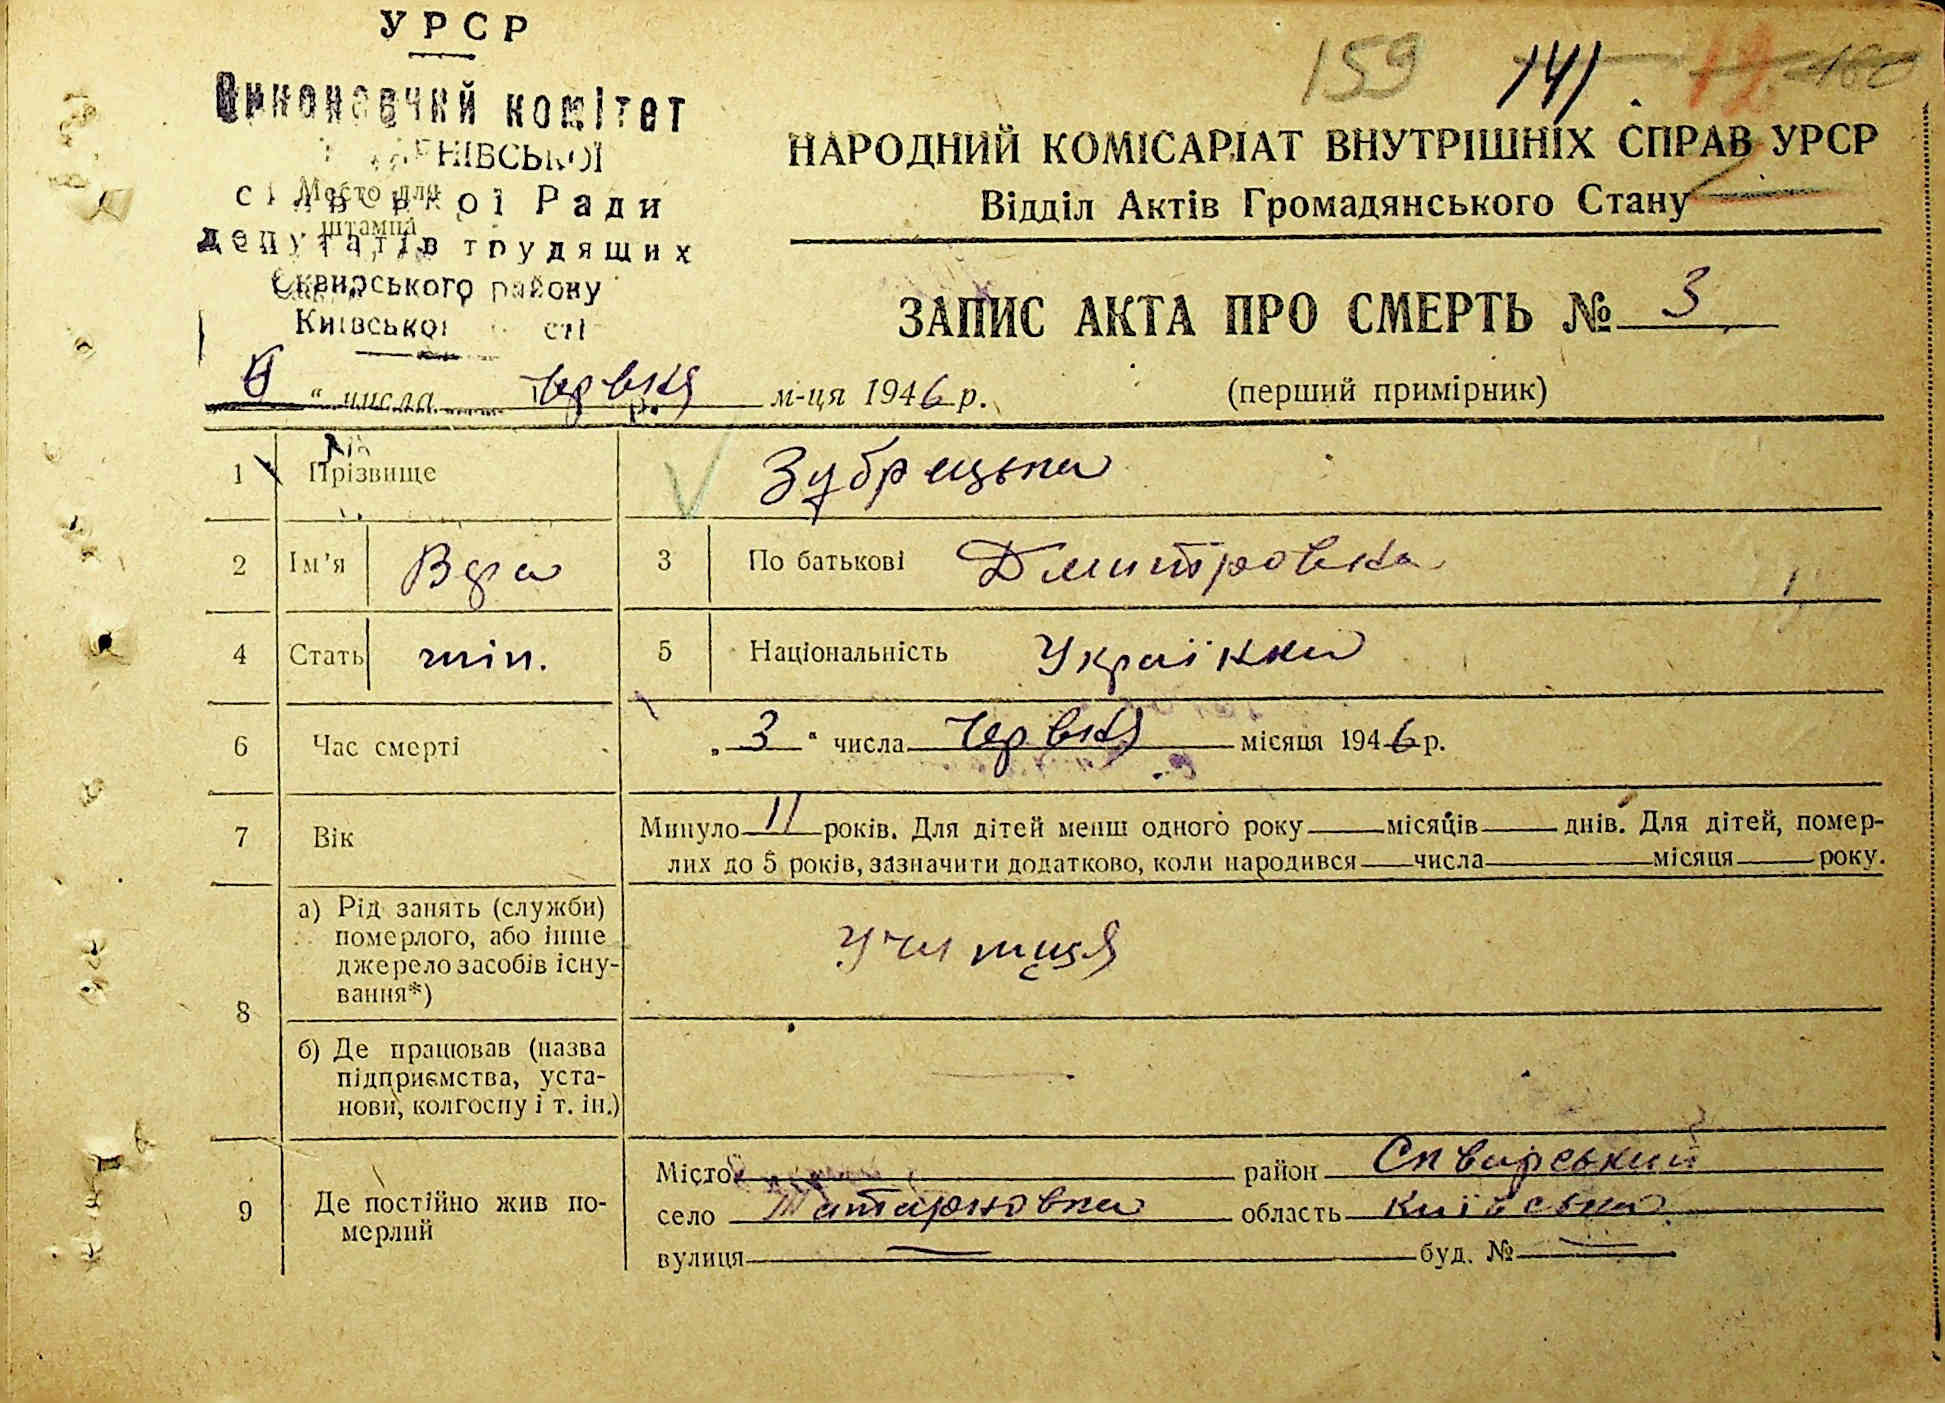 УРСР
159 141 12 160
Виконавчий комітет
НІВСЬКОЇ
Место для
сільської Ради
штампа
депутатів трудящих
Сквирського району
Київської
НАРОДНИЙ КОМІСАРІАТ ВНУТРІШНІХ СПРАВ УРСР
Відділ Актів Громадянського Стану
ЗАПИС АКТА ПРО СМЕРТЬ № 3
(перший примірник)
" числа червня м-ця 1946 р.
1 Прізвище Зубрецька
2 Ім'я Вєра 3 По батькові Дмитровна
4 Стать жін. 5 Національність Українка
6 Час смерті „ 3 " числа червня місяця 1946 р.
7 Вік Минуло 11 років. Для дітей менш одного року місяців днів. Для дітей, помер-
лих до 5 років, зазначити додатково, коли народився числа місяця року.
8 а) Рід занять (служби)
померлого, або інше
джерело засобів існу-
вання*) Учениця
б) Де працював (назва
підприємства, уста-
нови, колгоспу і т. ін.)
9 Де постійно жив по-
мерлий
Місто район Сквирський
село Татариновка область Київська
вулиця буд. №